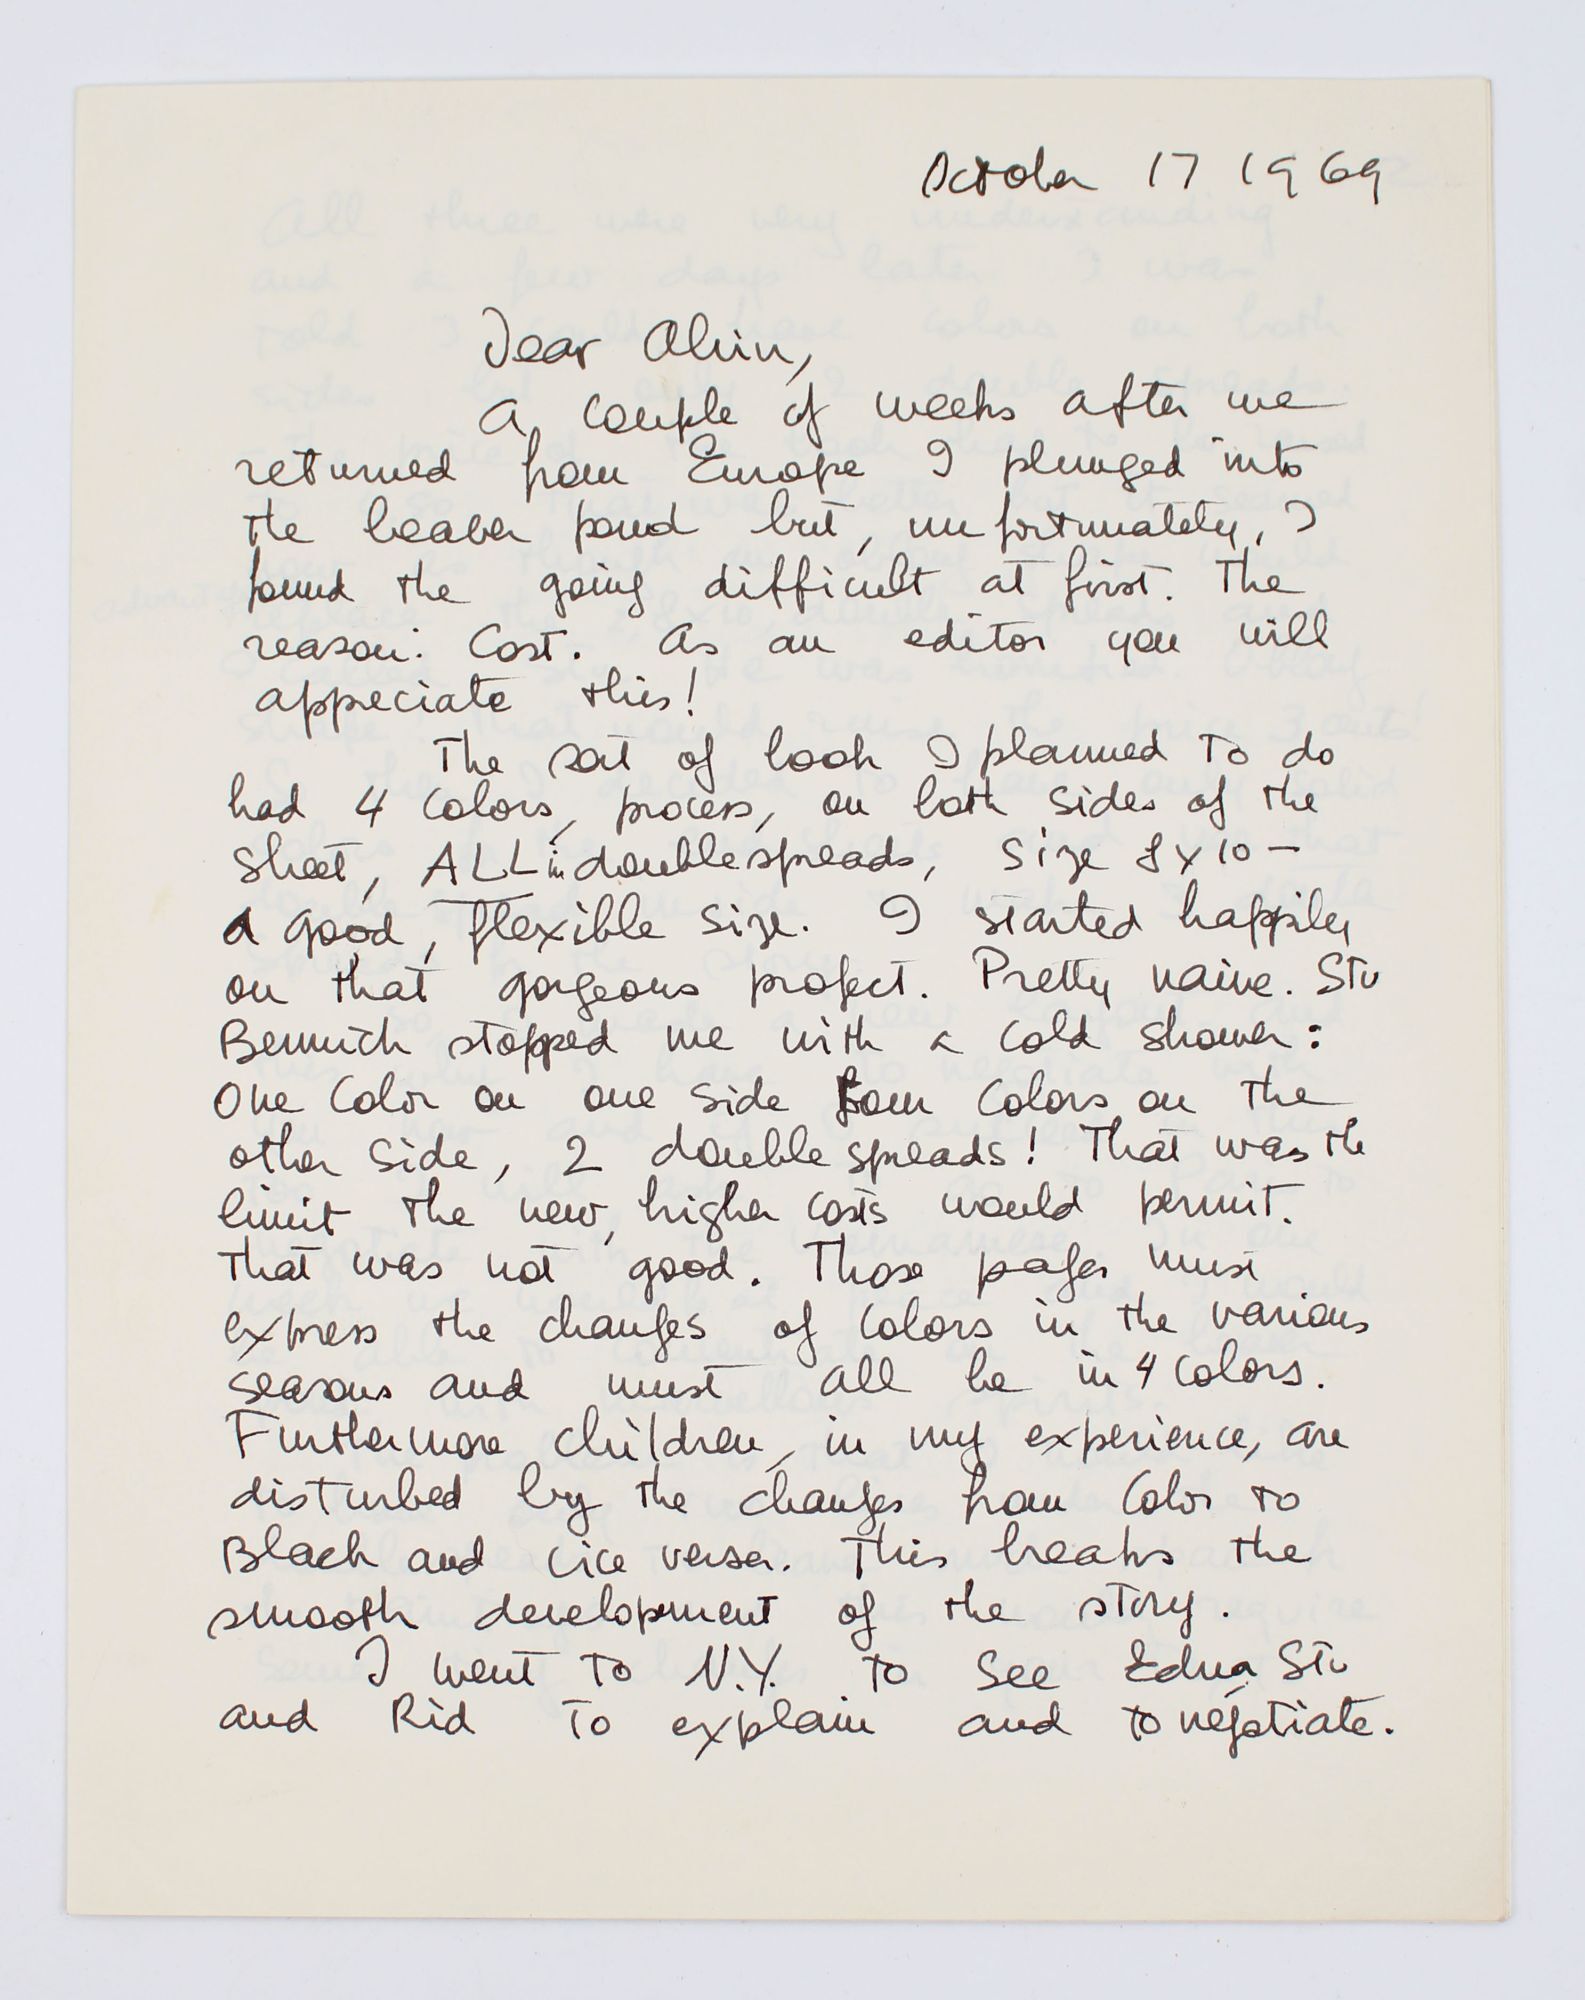 October 17 1969
Dear Alvin,
A couple of weeks after we
returned from Europe I plunged into
the beaver pond but, unfortunately, I
found the going difficult at first. The
reason: Cost. As an editor you will
appreciate this!
The sort of book I planned to do
had 4 colors, process, on both sides of the
sheet, ALL in doublespreads, size 8 x 10 –
A good, flexible size. I started happily
on that gorgeous project. Pretty naive. Stu
stopped me with a cold shower:
One color on one side Four colors on the
other side, 2 double spreads! That was the
limit the new, higher costs would permit.
That was not good. Those pages must
express the changes of colors in the various
seasons and must all be in 4 colors.
Furthermore children, in my experience, are
disturbed by the changes from color to
Black and vice versa. This breaks the
smooth development of the story.
I went to N.Y. to see Edna, Stu
and Rid to explain and to negotiate.